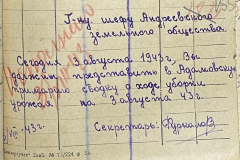 Г-ну шефу Андреевского
земельного общества
Сегодня 3 августа 1943г. Вы
должны представить в Адамовскую
примарию сводку о ходе уборки
урожая на 3 августа 43г.
VIII-43г.
Секретарь: